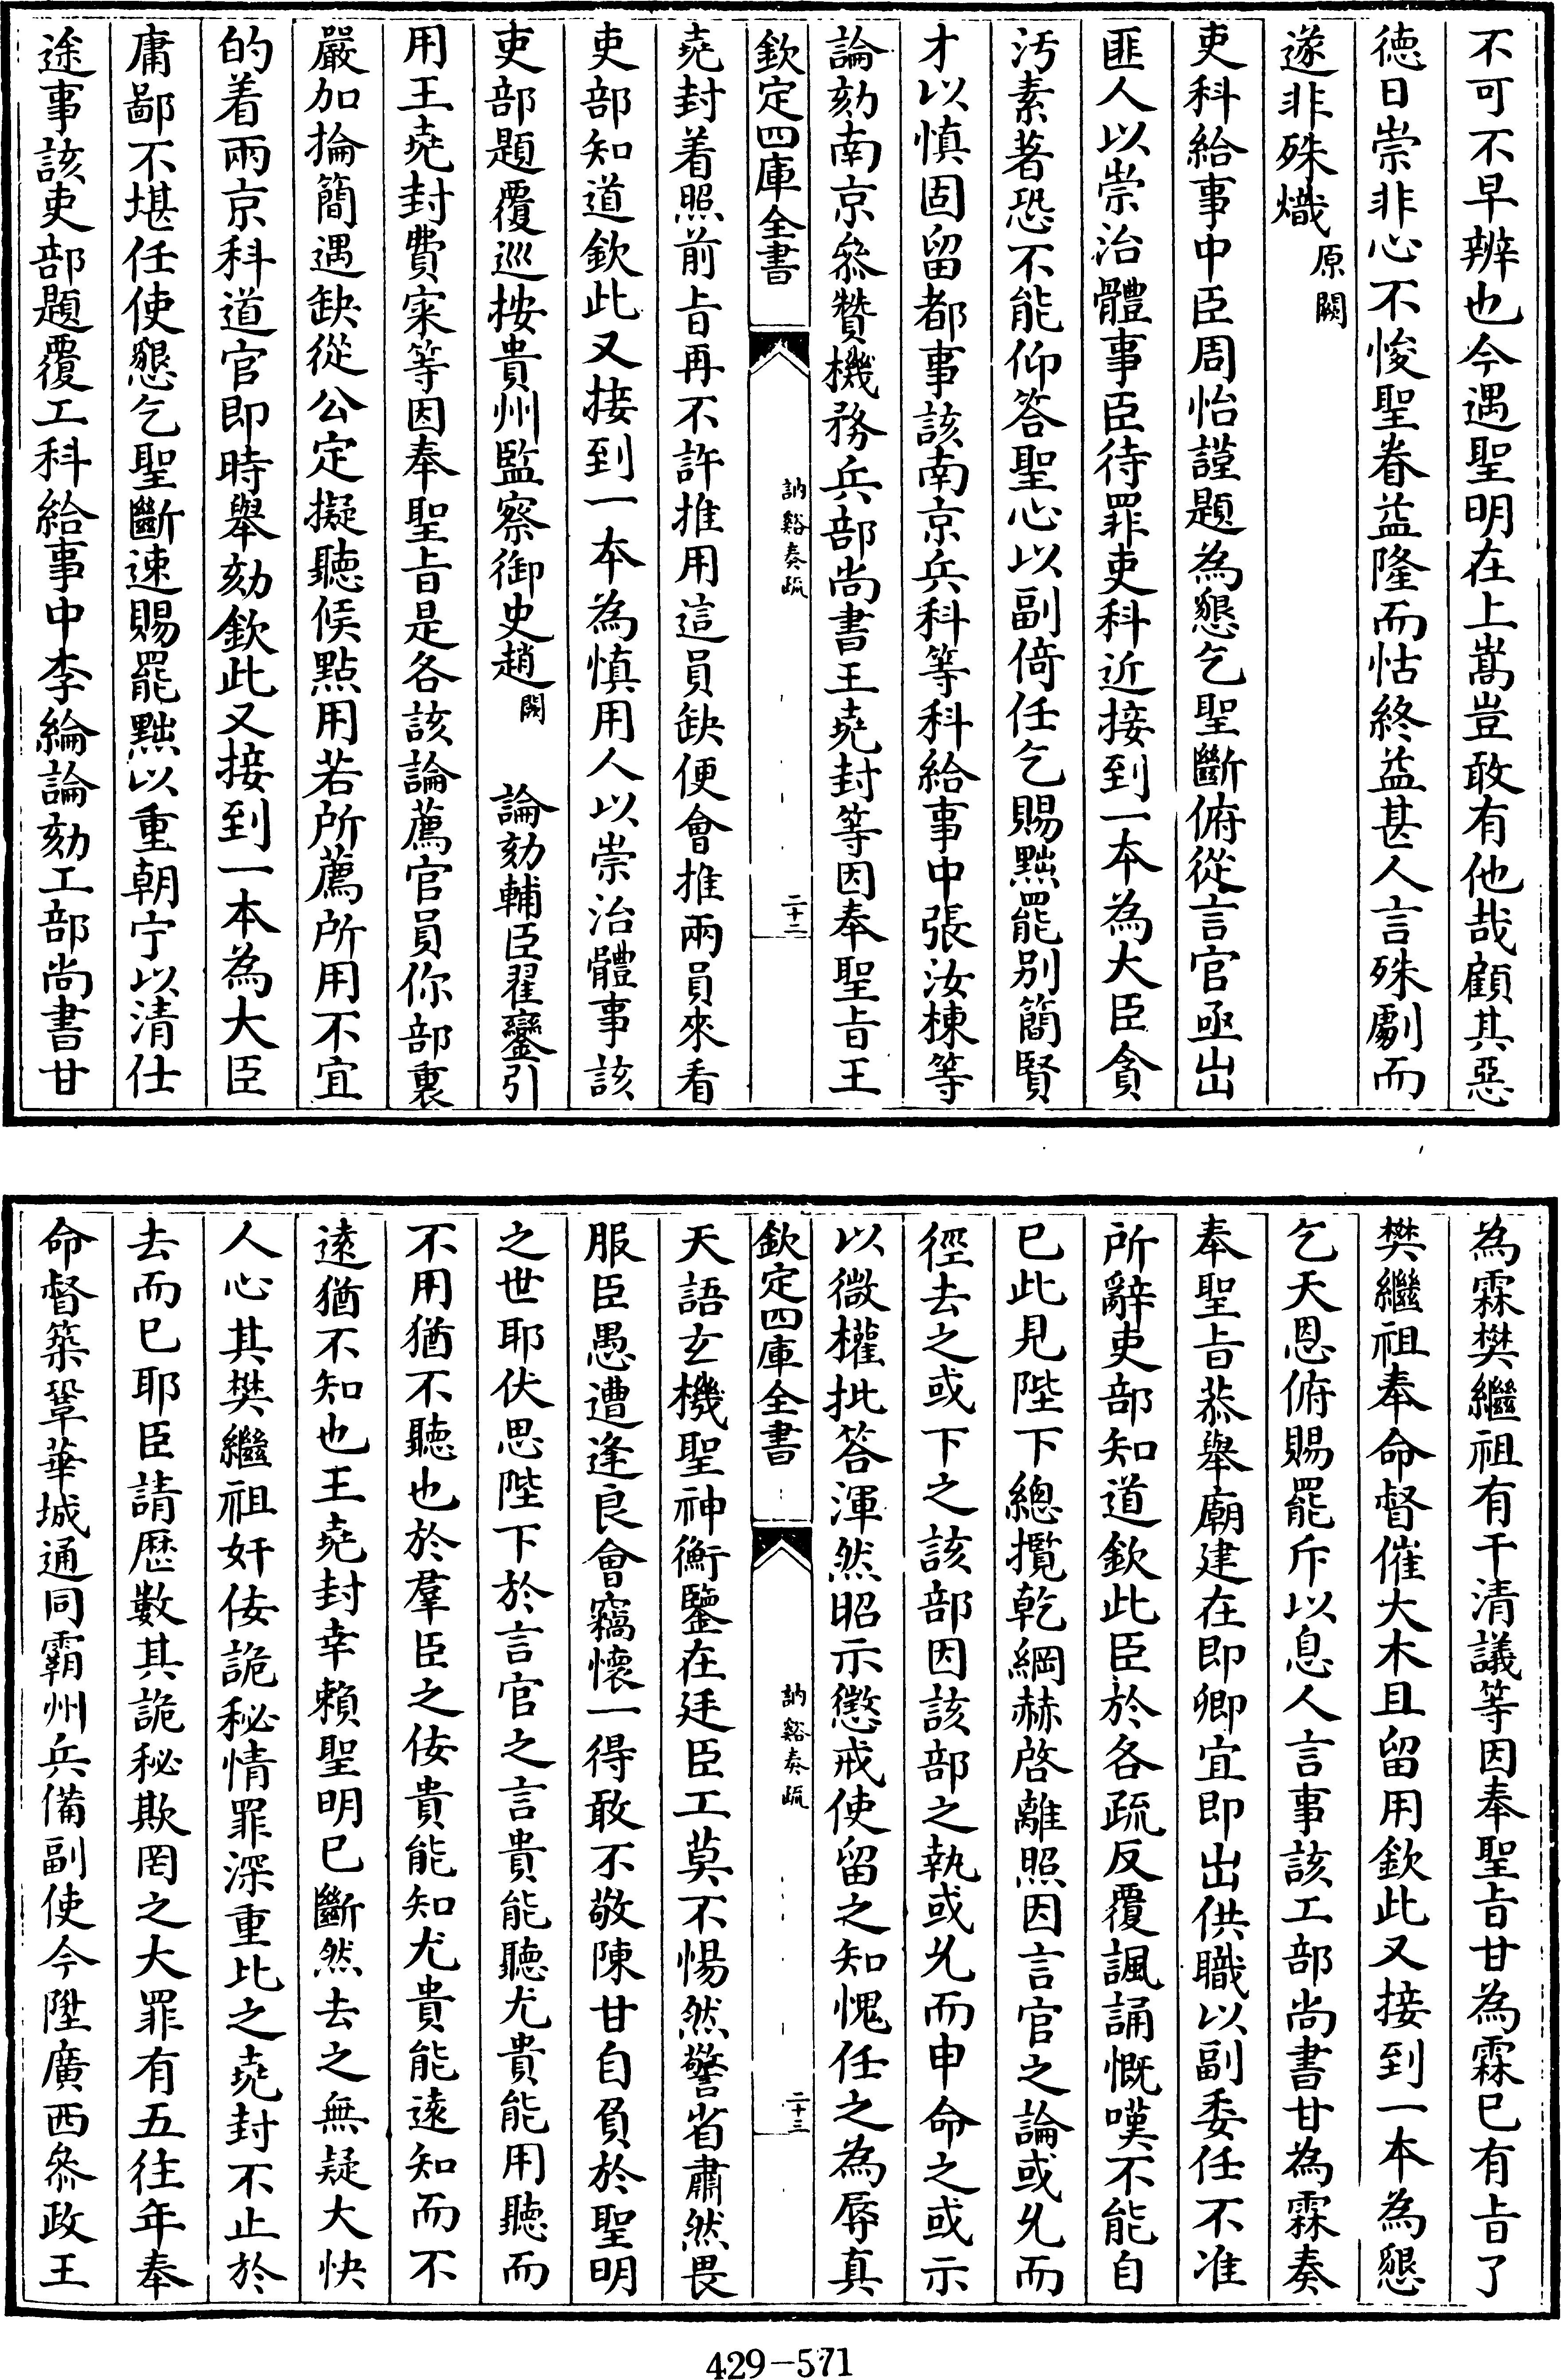 不可不早辨也今遇聖明在上嵩豈敢有他哉顧其惡
德日崇非心不悛聖眷益隆而怙終益甚人言殊劇而
遂非殊熾原闕
吏科給事中臣周怡謹題為懇乞聖斷俯從言官亟出
匪人以崇治體事臣待罪吏科近接到一本為大臣貪
汚素著恐不能仰答聖心以副倚任乞賜黜罷别簡賢
才以慎固留都事該南京兵科等科給事中張汝棟等
論劾南京叅贊機務兵部尚書王堯封等因奉聖㫖王
欽定四庫全書
訥谿奏疏
二十二
堯封着照前㫖再不許推用這員缺便會推兩員來看
吏部知道欽此又接到一本為慎用人以崇治體事該
吏部題覆巡按貴州監察御史趙闕論劾輔臣翟鑾引
用王堯封費寀等因奉聖㫖是各該論薦官員你部裏
嚴加掄簡遇缺從公定擬聽候點用若所薦所用不宜
的着兩京科道官即時舉劾欽此又接到一本為大臣
庸鄙不堪任使懇乞聖斷速賜罷黜以重朝宁以清仕
途事該吏部題覆工科給事中李綸論劾工部尚書甘
為霖樊繼祖有干清議等因奉聖㫖甘為霖已有㫖了
樊繼祖奉命督催大木且留用欽此又接到一本為懇
乞天恩俯賜罷斥以息人言事該工部尚書甘為霖奏
奉聖㫖恭舉廟建在即卿宜即出供職以副委任不准
所辭吏部知道欽此臣於各疏反覆諷誦慨嘆不能自
已此見陛下總攬乾綱赫啓離照因言官之論或允而
徑去之或下之該部因該部之執或允而申命之或示
以微權批答渾然昭示懲戒使留之知愧任之為辱真
欽定四庫全書
訥谿奏疏
二十三
天語玄機聖神衡鑒在廷臣工莫不惕然警省肅然畏
服臣愚遭逢良會竊懷一得敢不敬陳甘自負於聖明
之世耶伏思陛下於言官之言貴能聽尤貴能用聽而
不用猶不聽也於羣臣之佞貴能知尤貴能遠知而不
遠猶不知也王堯封幸賴聖明已斷然去之無疑大快
人心其樊繼祖奸佞詭秘情罪深重比之堯封不止於
去而已耶臣請歴數其詭秘欺罔之大罪有五往年奉
命督築鞏華城通同霸州兵備副使今陞廣西叅政王
429-571